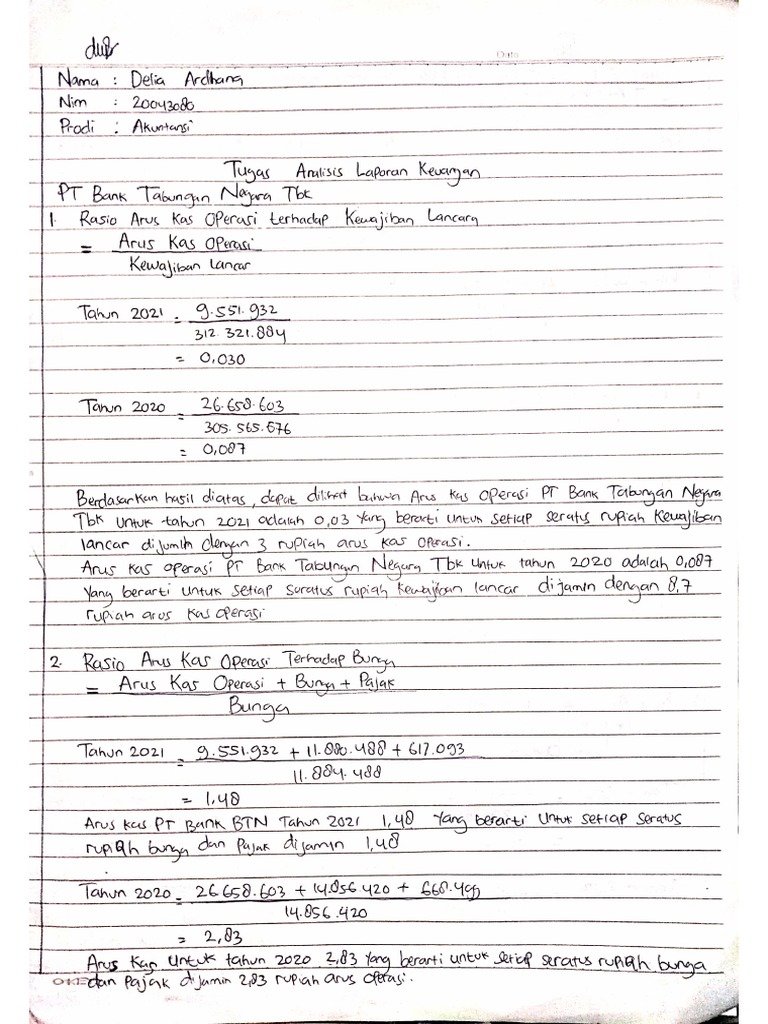 Date
Nama : Delia Ardhana
Nim : 20043080
Prodi : Akuntansi
Tugas Analisis Laporan Keuangan
PT Bank Tabungan Negara Tbk
1. Rasio Arus Kas Operasi terhadap Kewajiban Lancara
= Arus Kas Operasi
Kewajiban Lancar
Tahun 2021 = 9.551.932
312.321.884
= 0,030
Tahun 2020 = 26.658.603
305.565.676
= 0,087
Berdasarkan hasil diatas, dapat dilihat bahwa Arus kas operasi PT Bank Tabungan Negara
Tbk untuk tahun 2021 adalah 0,03 yang berarti untuk setiap seratus rupiah Kewajiban
lancar dijumlin dengan 3 rupiah arus kas operasi.
Arus kas operasi PT Bank Tabungan Negara Tbk untuk tahun 2020 adalah 0,087
yang berarti untuk setiap suratus rupiah kewajiban lancar dijamin dengan 8,7
rupiah arus kas operasi
2. Rasio Arus Kas Operasi Terhadap Bunga
= Arus Kas Operasi + Bunga + Pajak
Bunga
Tahun 2021 = 9.551.932 + 11.880.488 + 617.093
11.884.488
= 1,48
Arus kas PT Bank BTN Tahun 2021 1,48 yang berarti untuk setiap seratus
rupiah bunga dan pajak dijamin 1,48
Tahun 2020 = 26.658.603 + 14.856.420 +
14.856.420
= 2,83
Arus Kas untuk tahun 2020 2,83 yang berarti untuk setiap seratus rupiah bunga
dan pajak dijamin 2,83 rupiah arus operasi.